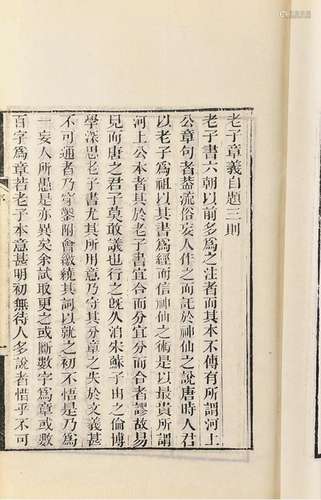 老子章義自題三則
老子書六朝以前多為之注者而其本不傳有所謂河上
公章句者蓋流俗妄人作之而託於神仙之說唐時人君
以老子為祖以其書為經而信神仙之術是以最貴所謂
河上公本者其於老子書宜合而分宜分而合者謬故易
見而唐之君子莫敢議也行之旣久洎朱蘇子由之倫博
學深思老子書尤其所用意乃守其分章之失於文義甚
不可通者乃穿鑿附會繳繞其詞以就之初不悟是乃為
一妄人所愚是亦異矣余試取更之或斷數字為章或數
百字為章若老子本意甚明初無待人多說者惜乎不可